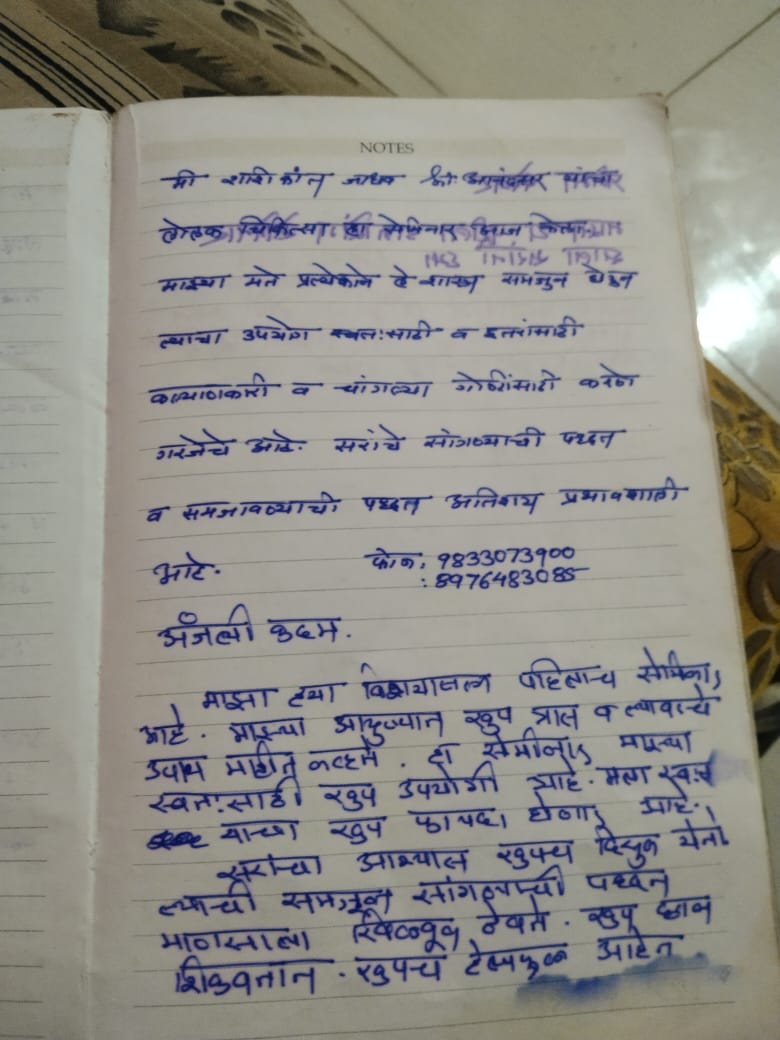 NOTES
मी शशिकांत जाधव श्री. आनंदसर यांच्या
लोलक चिकित्सा हा सेमिनार आज केला
माझ्या मते प्रत्येकाने हे शास्त्र समजुन घेऊन
त्याचा उपयोग स्वतःसाठी व इतरांसाठी
कल्याणकारी व चांगल्या गोष्टींसाठी करणे
गरजेचे आहे. सरांचे सांगण्याची पध्दत
व समजावण्याची पध्दत अतिशय प्रभावशाली
आहे. फोन: 9833073900
: 8976483085
अंजली कदम.
माझा ह्या विषयाबद्दल पहिलाच सेमिनार
आहे. माझ्या आयुष्यात खुप त्रास व त्यावाचे
उपाय माहीत नव्हते. हा सेमीनार माझ्या
स्वतःसाठी खुप उपयोगी आहे. मला स्वतः
याचा खुप फायदा होणार आहे.
सरांचा अभ्यास खुपच दिसुन येतो
त्यांची समजून सांगण्याची पध्दत
माणसाला खिळवून ठेवते. खुप छान
शिकवतात. खुपच हेल्पफुल आहेत.